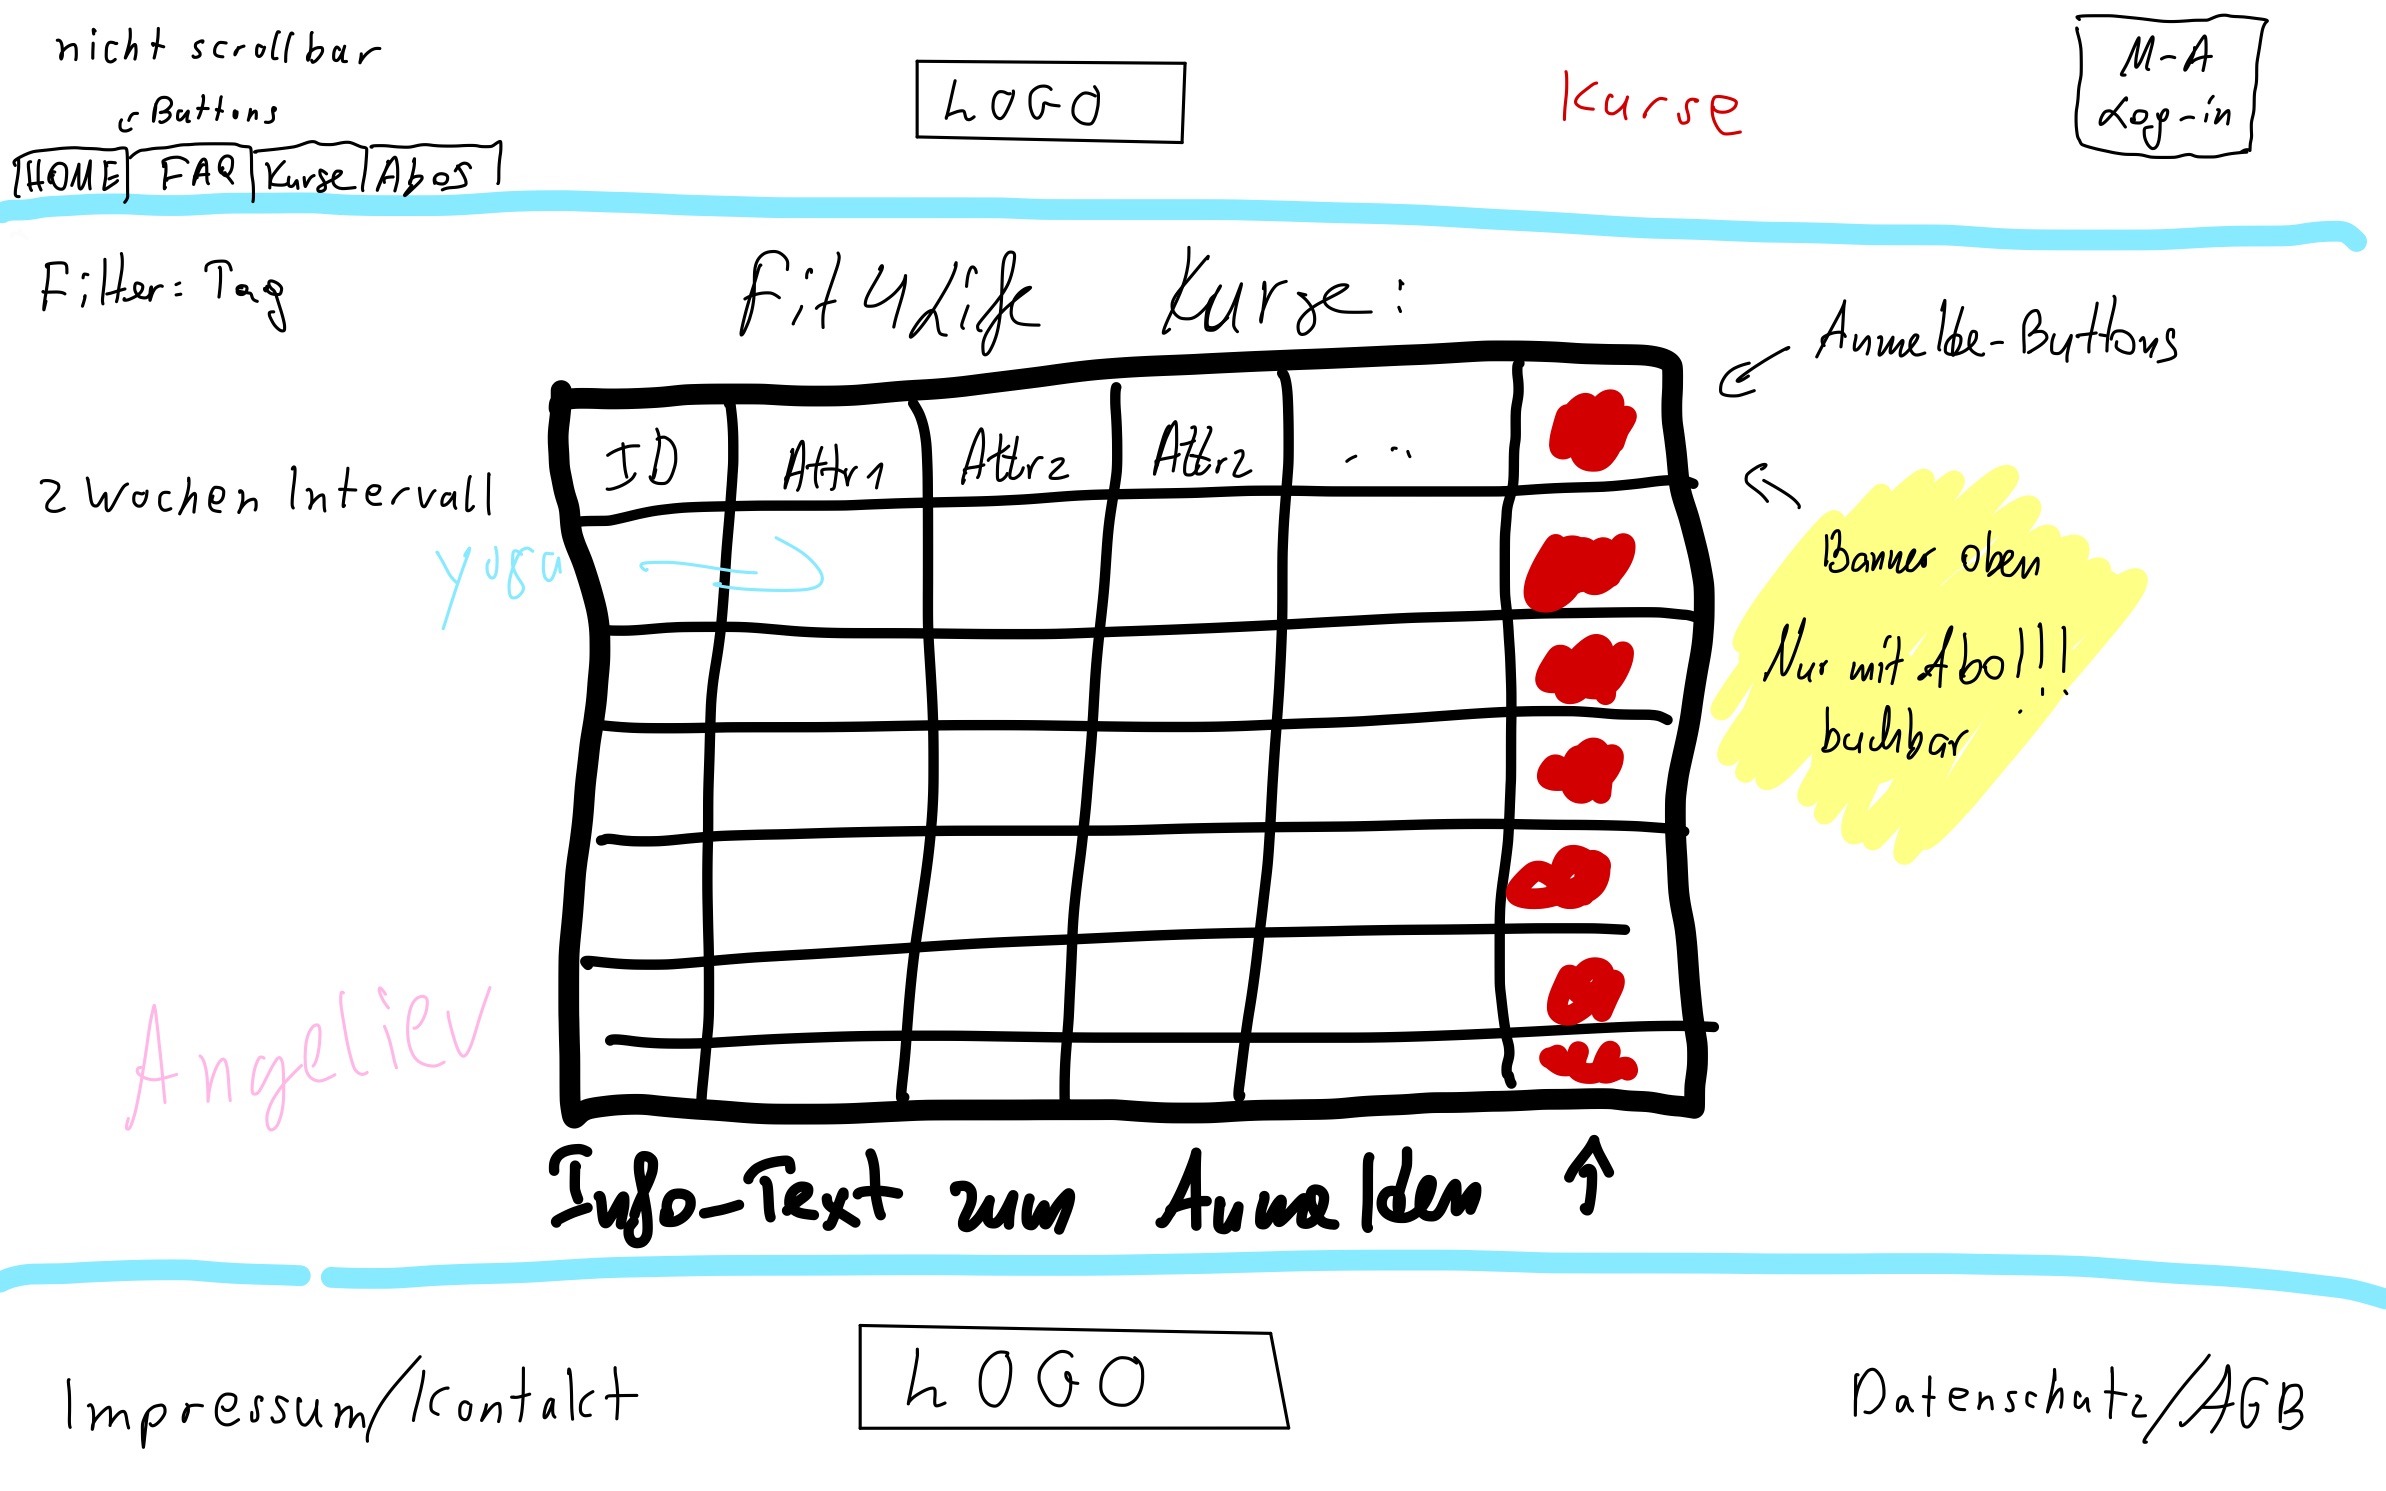 nicht scrollbar
Buttons
HOME FAQ Kurse Abos
LOGO
Kurse
M-A
Log-in
Filter: Tag
Fit4Life Kurse:
Anmelde-Buttons
2 Wochen Intervall
ID Attr1 Attr2 Attr2 ...
Yoga
Banner oben
Nur mit Abo!!!
buchbar
Angeliev
Info-Text zum Anmelden
Impressum/Kontakt
LOGO
Datenschutz/AGB